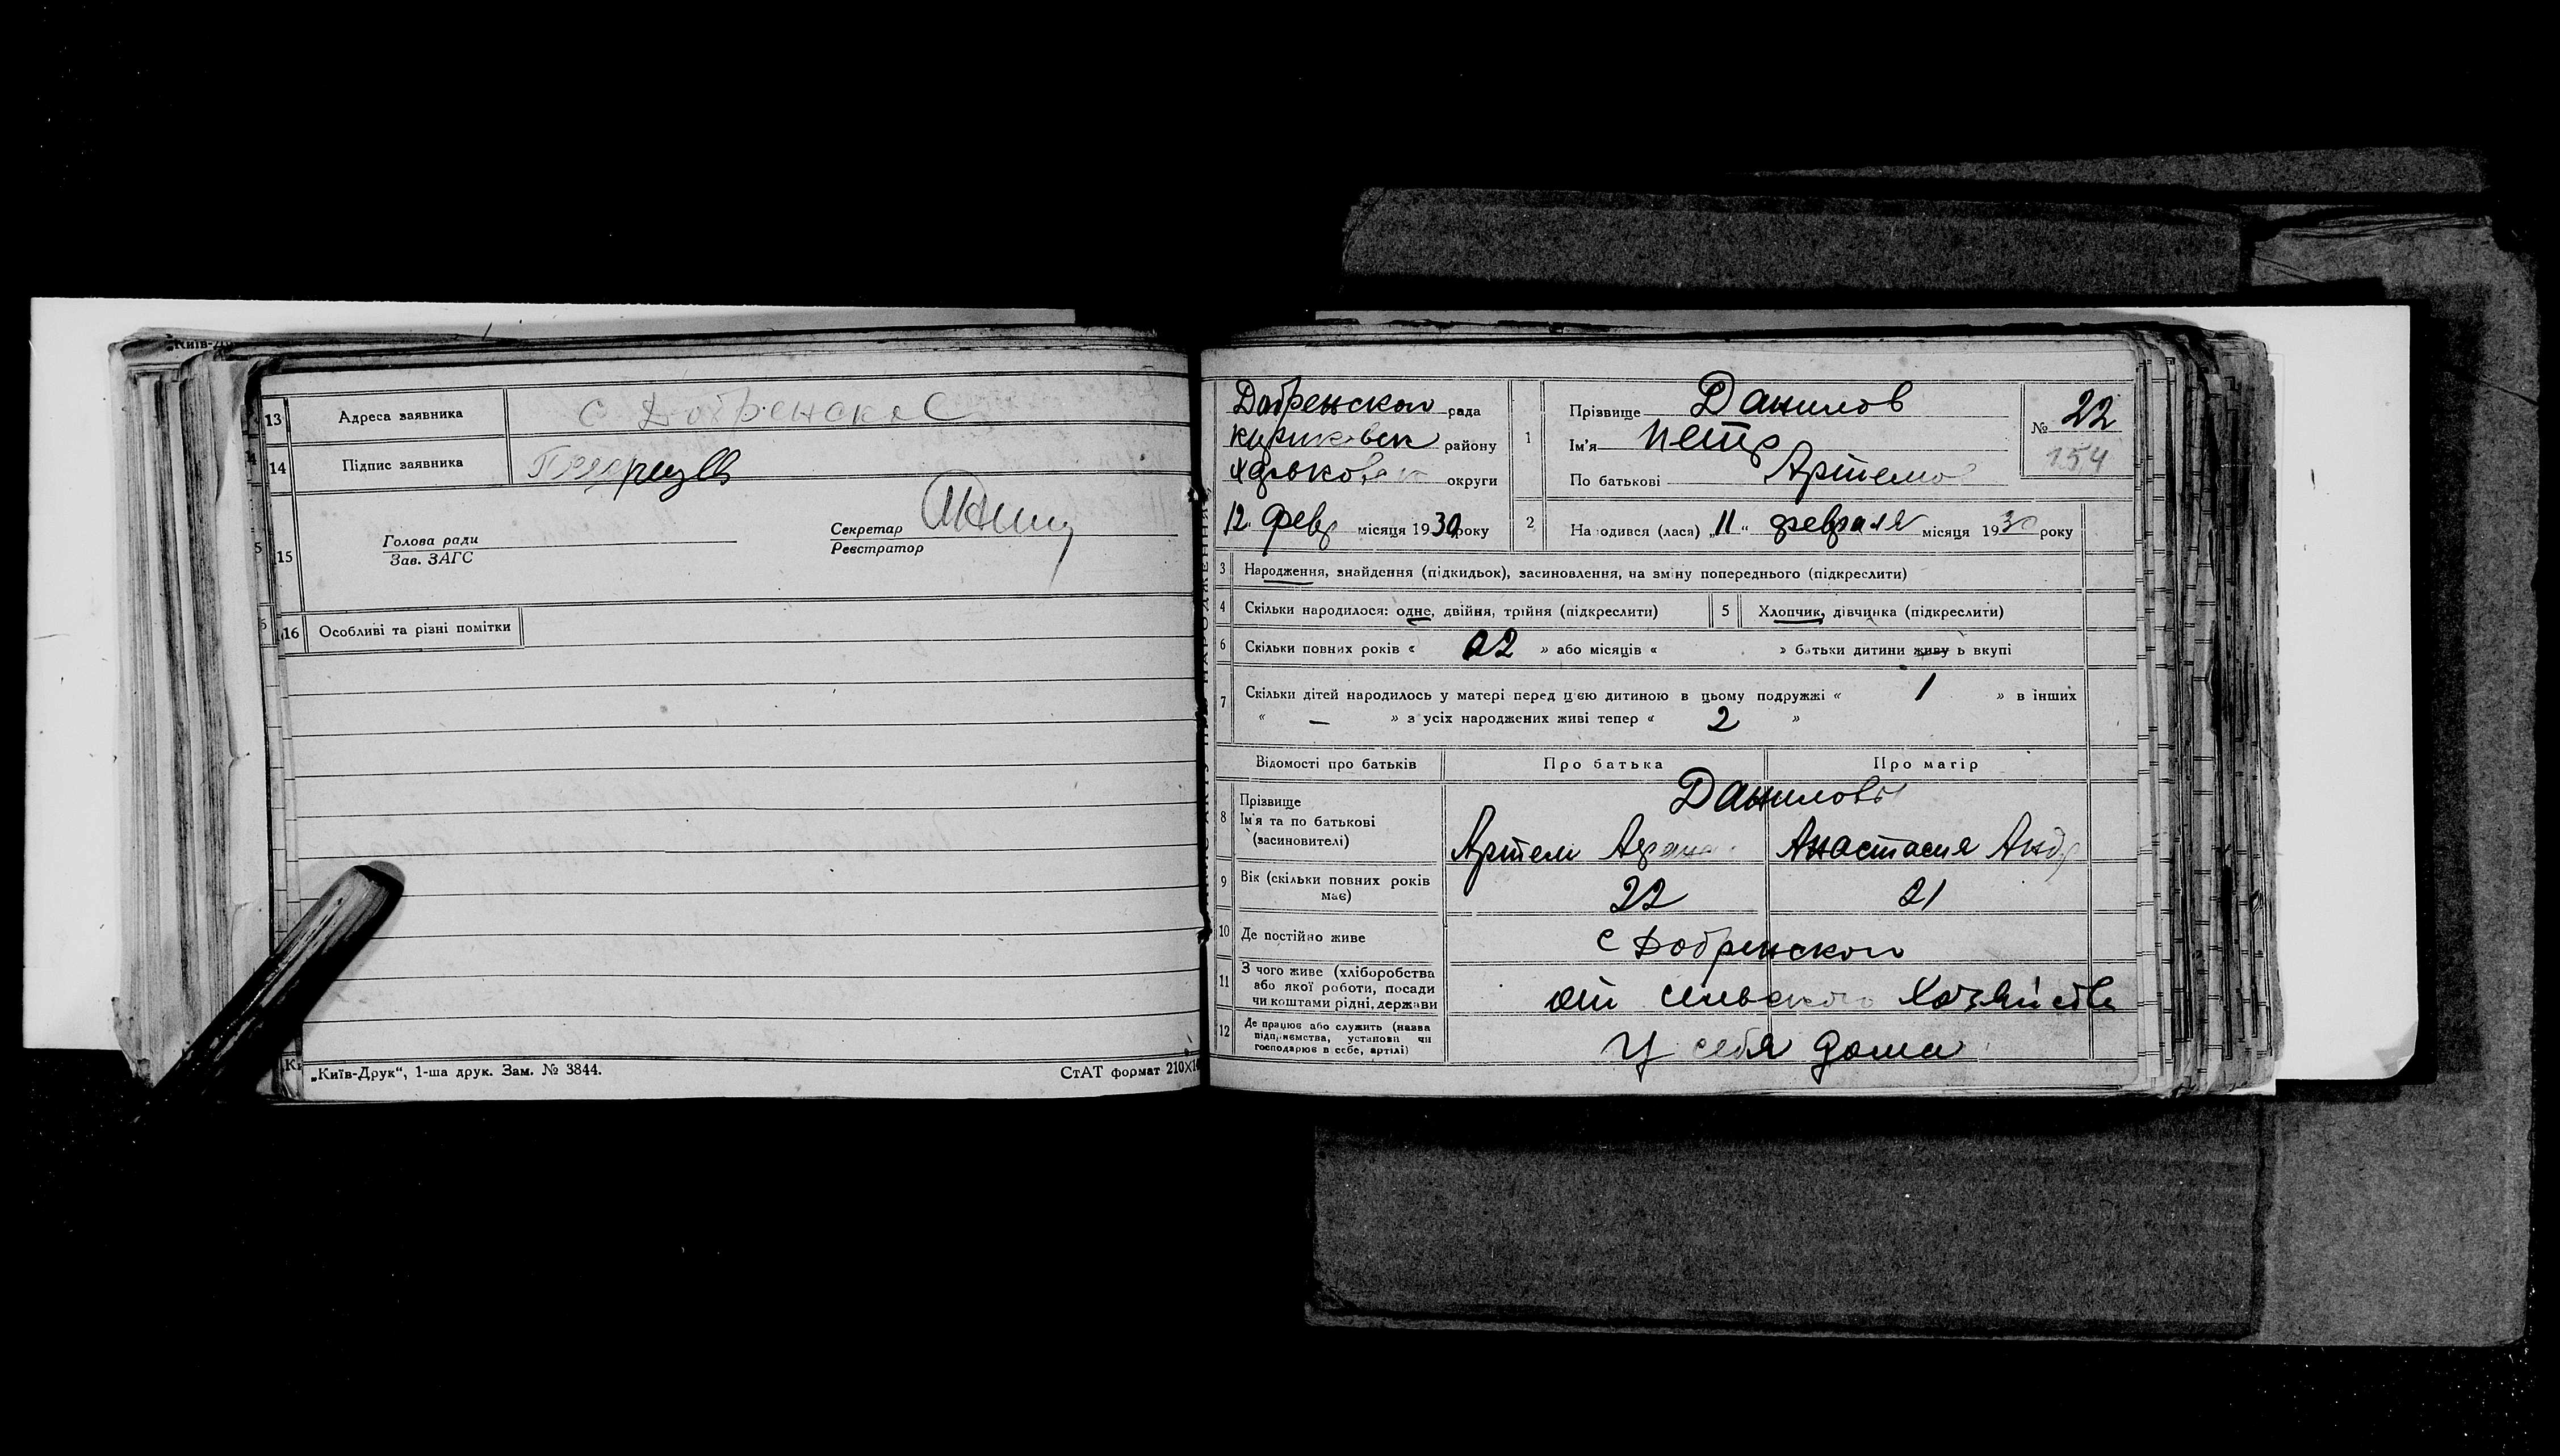 13 Адреса заявника с Добренское
14 Підпис заявника
15 Голова ради
Зав. ЗАГС
Секретар
Реєстратор
16 Особливі та різні помітки
„Київ-Друк“, 1-ша друк. Зам. № 3844.
СтАТ формат 210×1
Добренского рада
району
Харьковск округи
12 февр місяця 1930 року
1 Прізвище Данилов
Ім'я Петр
По батькові Артемов
№ 22
154
2 На одився (лася) „11“ февраля місяця 1930 року
3 Народження, знайдення (підкидьок), засиновлення, на зміну попереднього (підкреслити)
4 Скільки народилося: одне, двійня, трійня (підкреслити)
5 Хлопчик, дівчинка (підкреслити)
6 Скільки повних років « 02 » або місяців « » батьки дитини живу ь вкупі
7 Скільки дітей народилось у матері перед цією дитиною в цьому подружжі « 1 » в інших
« — » з усіх народжених живі тепер « 2 »
Відомості про батьків
Про батька
Про матір
8 Прізвище
Ім'я та по батькові
(засновителі)
Даниловы
Артем
Анастасия Андр
9 Вік (скільки повних років має)
22
21
10 Де постійно живе
с Добренского
11 З чого живе (хліборобства
або якої роботи, посади
чи коштами рідні, держави
от сельского Хозяйства
12 Де працює або служить (назва
підприємства, установи чи
господарює в себе, артілі)
У себя дома